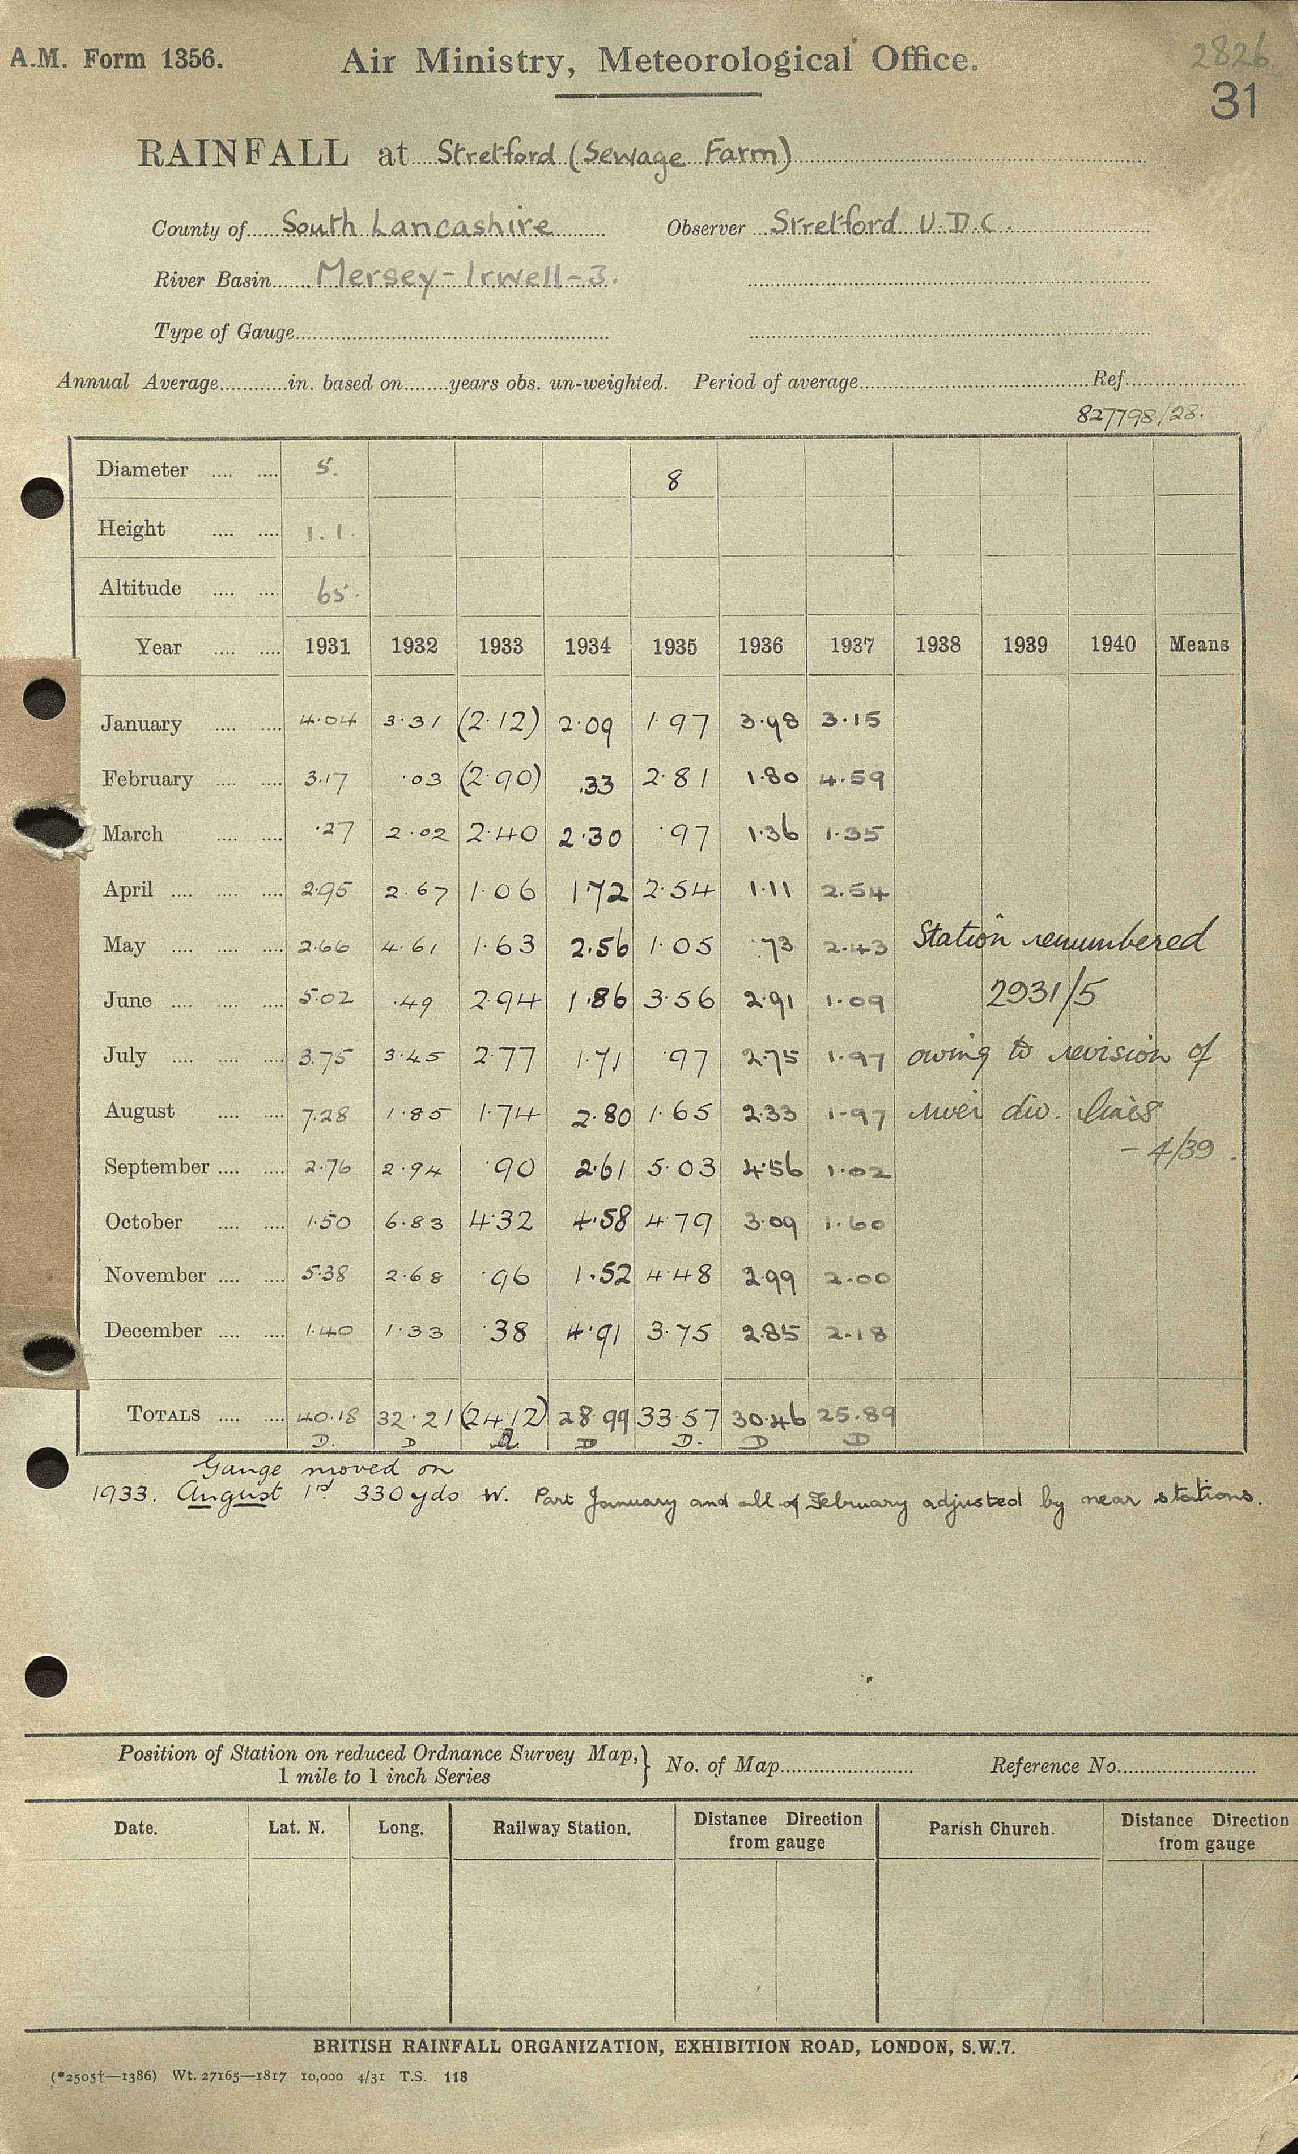 A.M. Form 1356. Air Ministry, Meteorological Office. 2826
31
RAINFALL at Stretford (Sewage Farm)
County of South Lancashire Observer Stretford U.D.C.
River Basin Mersey-Irwell-3.
Type of Gauge
Annual Average in. based on years obs. un-weighted. Period of average Ref.
827798/28.
Diameter 5. 8
Height 1.1.
Altitude 65.
Year 1931 1932 1933 1934 1935 1936 1937 1938 1939 1940 Means
January 4.04 3.31 (2.12) 2.09 1.97 3.98 3.15
February 3.17 .03 (2.90) .33 2.81 1.80 4.59
March .27 2.02 2.40 2.30 .97 1.36 1.35
April 2.95 2.67 1.06 1.72 2.54 1.11 2.54
May 2.66 4.61 1.63 2.56 1.05 .73 2.43 Station renumbered
June 5.02 .49 2.94 1.86 3.56 2.91 1.09 2931/5
July 3.75 3.45 2.77 1.71 .97 2.75 1.97 owing to revision of
August 7.28 1.85 1.74 2.80 1.65 2.33 1.97 river div. lines
September 2.76 2.94 .90 2.61 5.03 4.56 1.02 - 4/39.
October 1.50 6.83 4.32 4.58 4.79 3.09 1.60
November 5.38 2.68 .96 1.52 4.48 2.99 2.00
December 1.40 1.33 .38 4.91 3.75 2.85 2.18
TOTALS 40.18 32.21 (24.12) 28.99 33.57 30.46 25.89
D. D D D. D D
Gauge moved on
1933. August 1st 330 yds W. Part January and all of February adjusted by near stations.
Position of Station on reduced Ordnance Survey Map,} No. of Map Reference No.
1 mile to 1 inch Series
Date. Lat. N. Long. Railway Station. Distance Direction from gauge Parish Church. Distance Direction from gauge
BRITISH RAINFALL ORGANIZATION, EXHIBITION ROAD, LONDON, S.W.7.
(*2505†—1386) Wt. 27165—1817 10,000 4/31 T.S. 118